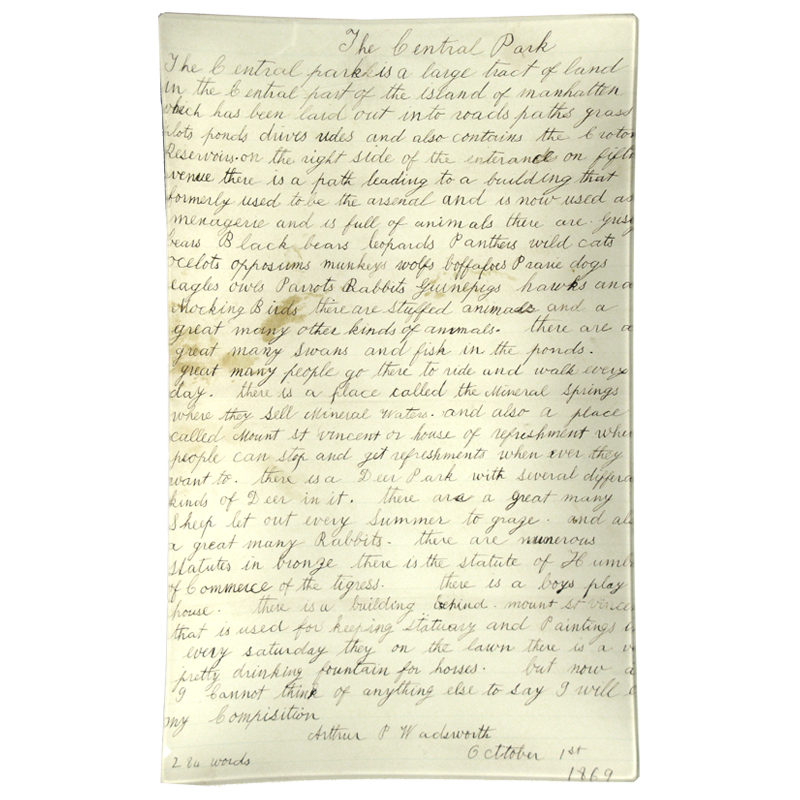 The Central Park
The Central park is a large tract of land
in the Central part of the island of manhatten
which has been laid out into roads paths grass
plots ponds drives rides and also contains the Croton
Reservoirs. on the right side of the enterance on fifth
avenue there is a path leading to a building that
formerly used to be the arsenal and is now used as
menagerie and is full of animals there are Grisy
bears Black bears leopards Panthers wild cats
ocelots opposums munkeys wolfs boffafoes Prarie dogs
eagles owls Parrots Rabbits Guinepigs hawks and
Mocking Birds there are stuffed animals and a
great many other kinds of animals. there are a
great many swans and fish in the ponds.
great many people go there to ride and walk every
day. there is a place called the Mineral Springs
where they sell Mineral Waters. and also a place
called Mount St Vincent or house of refreshment wher
people can stop and get refreshments when ever they
want to. there is a Deer Park with several differa
kinds of Deer in it. there are a great many
Sheep let out every Summer to graze. and als
a great many Rabbits. there are numerous
statutes in bronze there is the statute of Humb
of Commerce of the tigress. there is a boys play
house. there is a building behind. mount st vincen
that is used for keeping statuary and Paintings
every saturday they on the lawn there is a
pretty drinking fountain for horses. but now a
I Cannot think of anything else to say I will
my Compisition
Arthur P Wadsworth
Octtober 1st
1869
284 words